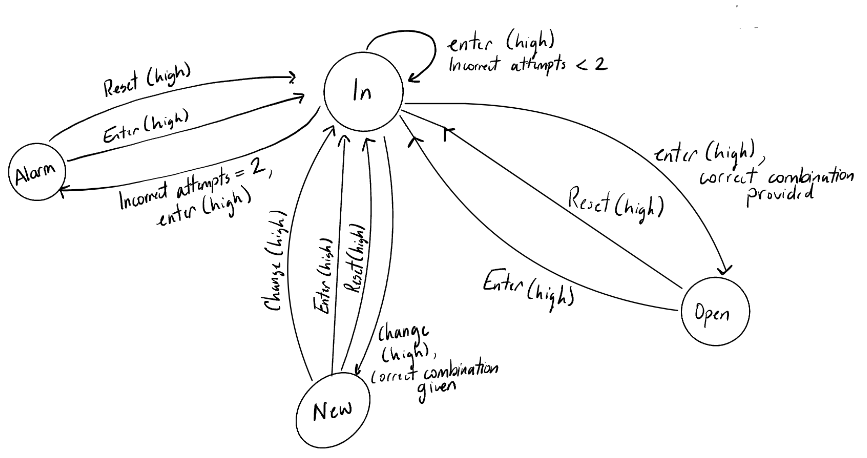 enter (high)
Incorrect attempts < 2
In
Reset (high)
Enter (high)
Alarm
Incorrect attempts = 2,
enter (high)
enter (high),
correct combination
provided
Reset (high)
Enter (high)
Open
Change (high)
Enter (high)
Reset (high)
Change
(high),
correct combination
given
New